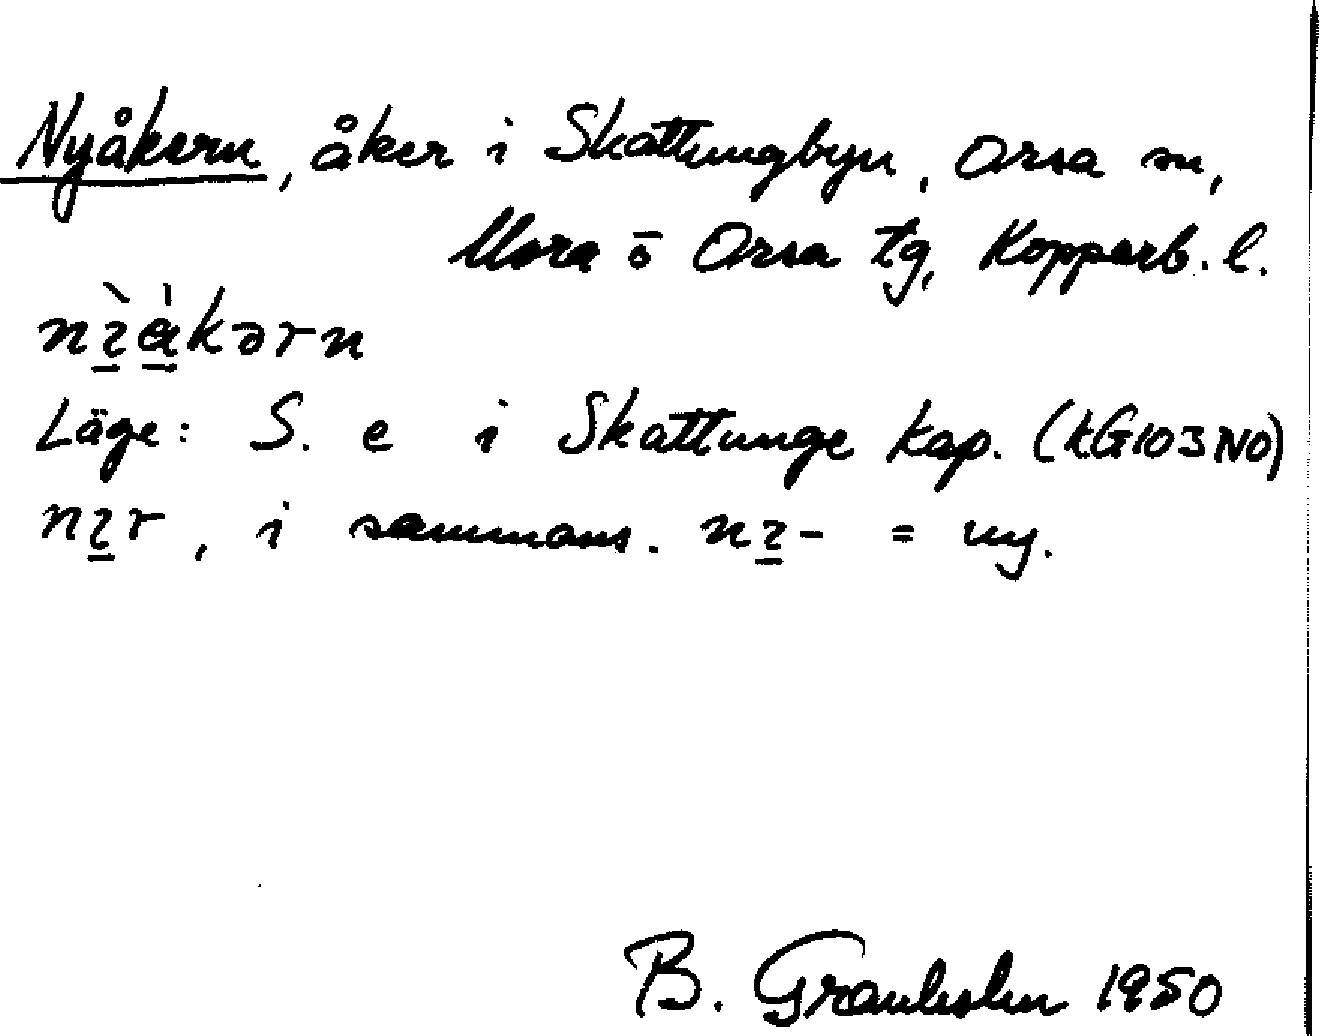 Nyåkern, åker i Skattungbyn, Orsa sn,
Mora o Orsa tg, Kopparb. l.
Läge: S. e i Skattunge kap. (KG103NO)
, i sammans. = ny.
B. 1950